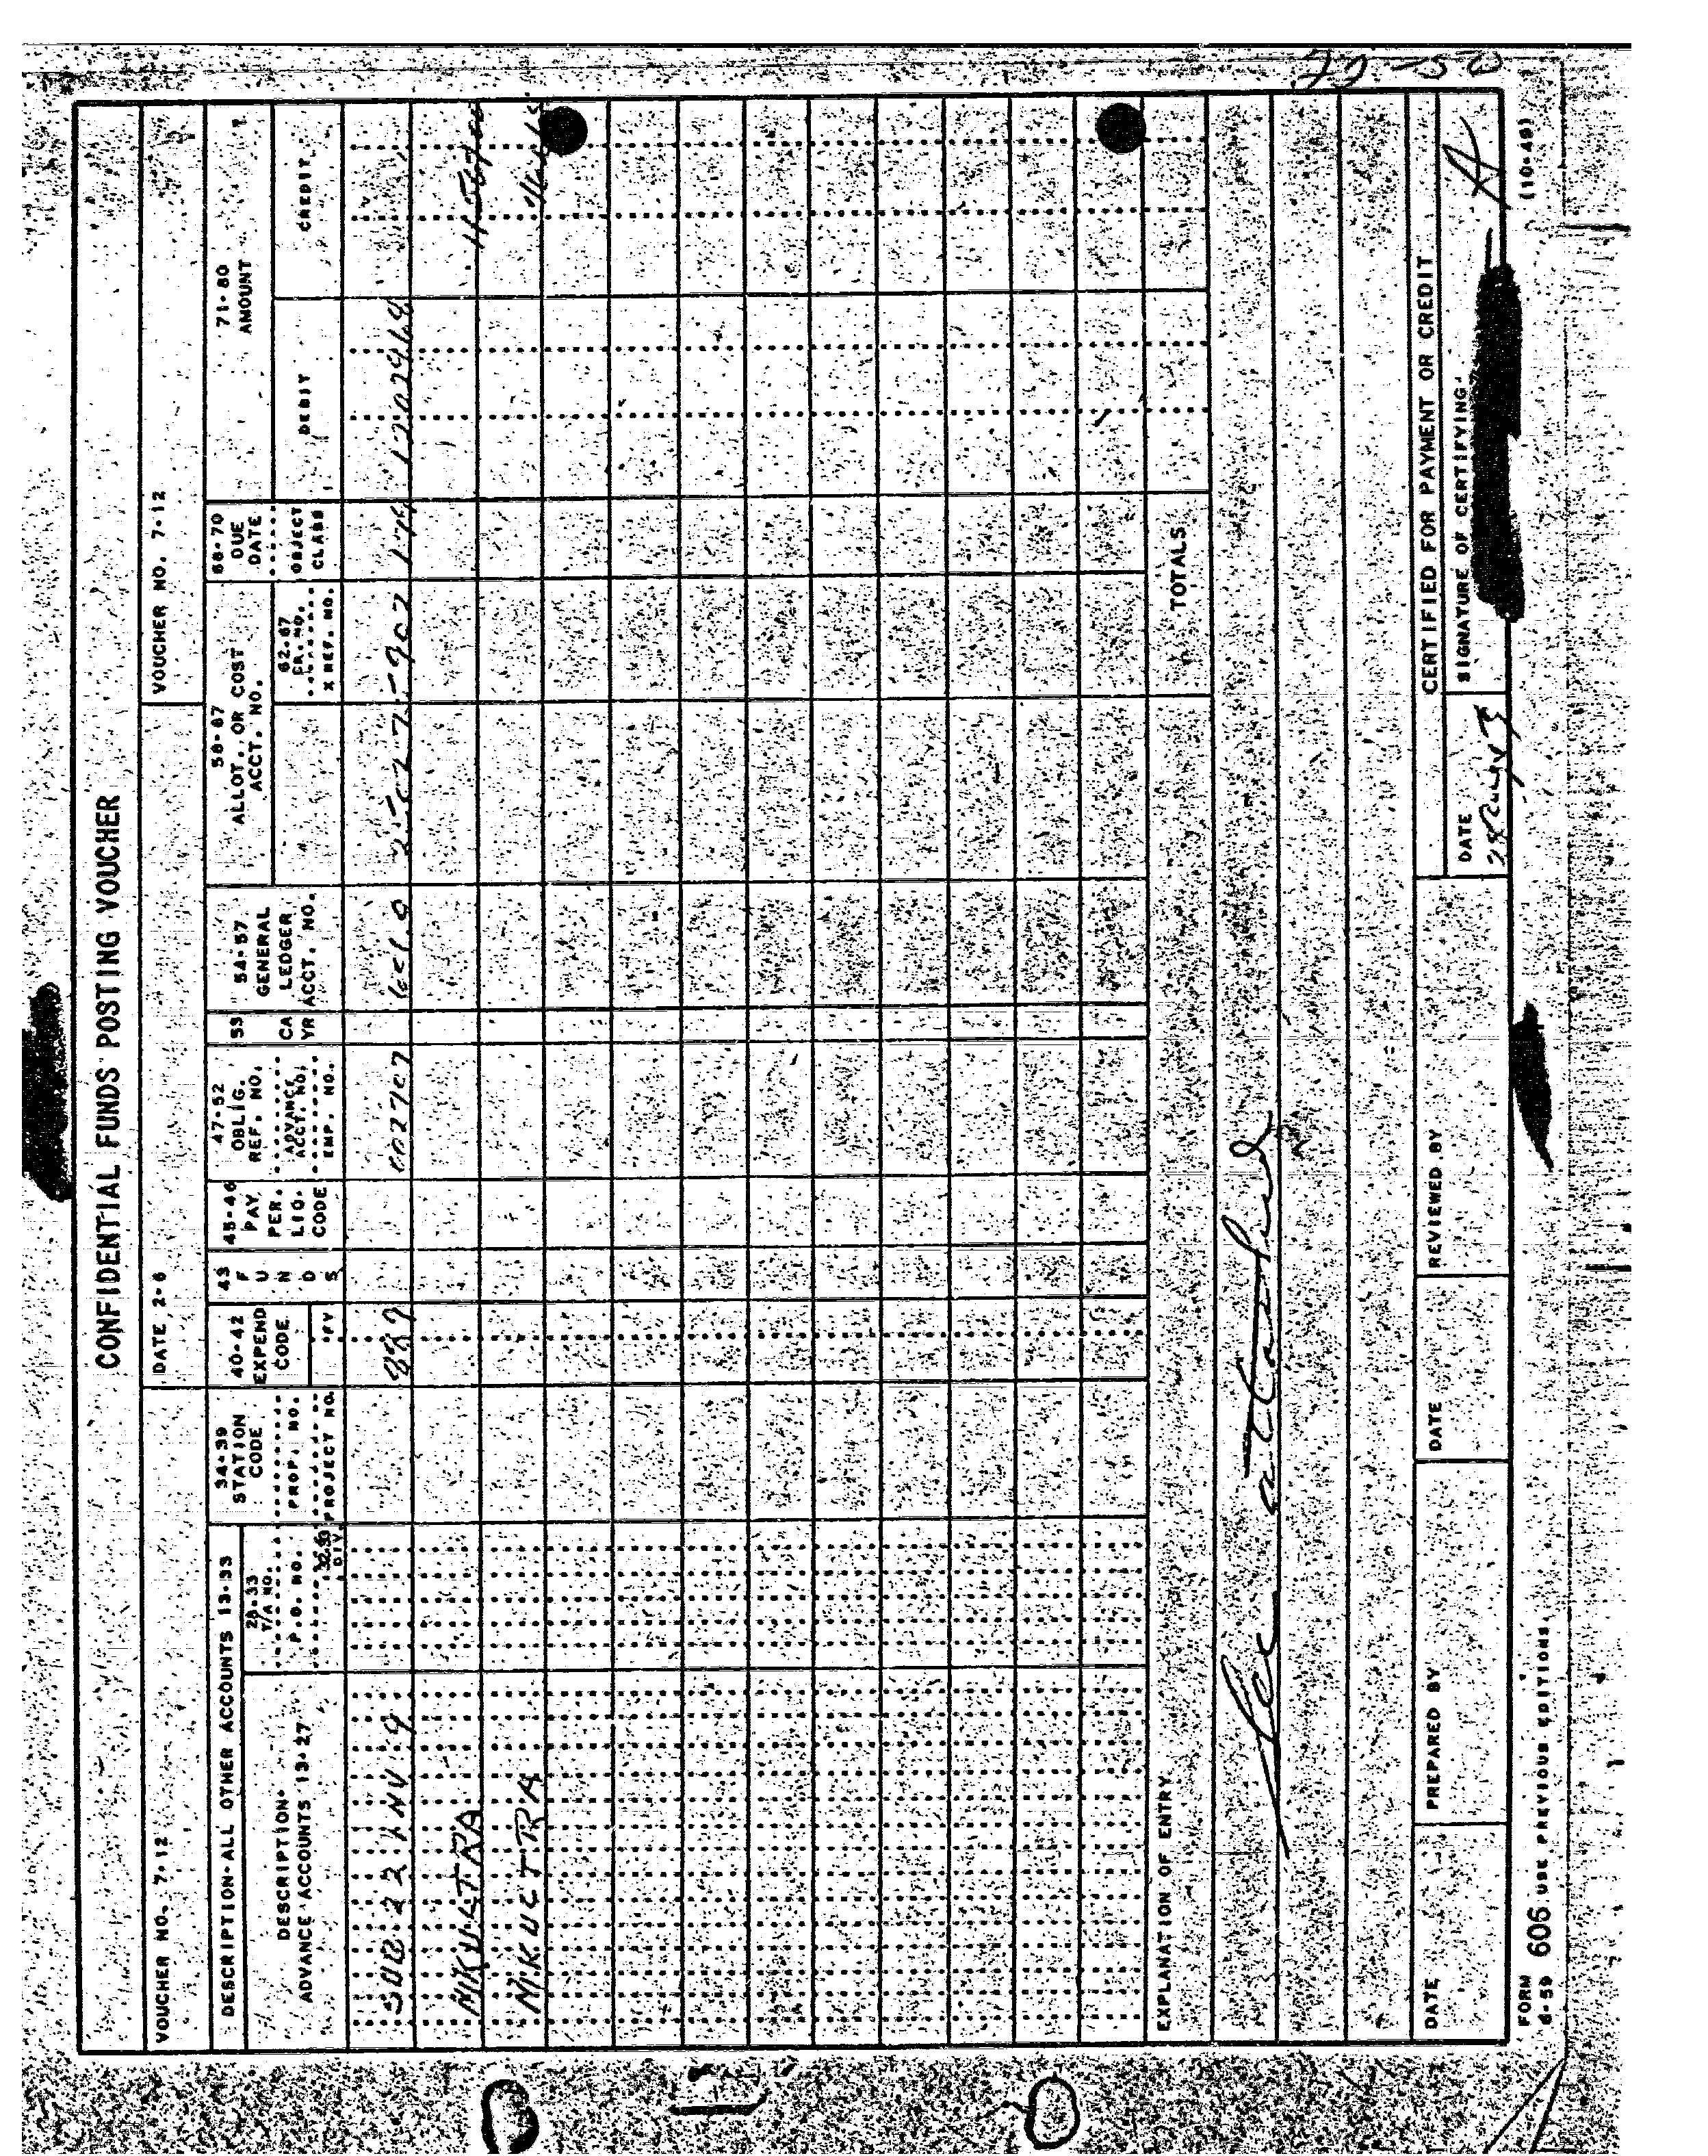 22-50
CONFIDENTIAL FUNDS POSTING VOUCHER
VOUCHER NO. 7-12 DATE 2-6 VOUCHER NO. 7-12
DESCRIPTION-ALL OTHER ACCOUNTS 13-33
DESCRIPTION-
ADVANCE ACCOUNTS 13-27
28-33
T/A NO.
P.O. NO.
32-33
DIV
34-39
STATION
CODE
PROP. NO.
PROJECT NO.
40-42
EXPEND
CODE
FY
43
FUNDS
45-46
PAY
PER.
LIQ.
CODE
47-52
OBLIG.
REF. NO.
ADVANCE
ACCT. NO.
EMP. NO.
53
CA
YR
54-57
GENERAL
LEDGER
ACCT. NO.
58-67
ALLOT. OR COST
ACCT. NO.
62-67
CR. NO.
X REF. NO.
68-70
DUE
DATE
OBJECT
CLASS
71-80
AMOUNT
DEBIT CREDIT
SUB 22 INV 9
MKULTRA
MKULTRA
EXPLANATION OF ENTRY TOTALS
See attached
DATE PREPARED BY DATE REVIEWED BY CERTIFIED FOR PAYMENT OR CREDIT
DATE SIGNATURE OF CERTIFYING
FORM
6-59 606 USE PREVIOUS EDITIONS. (10-49)